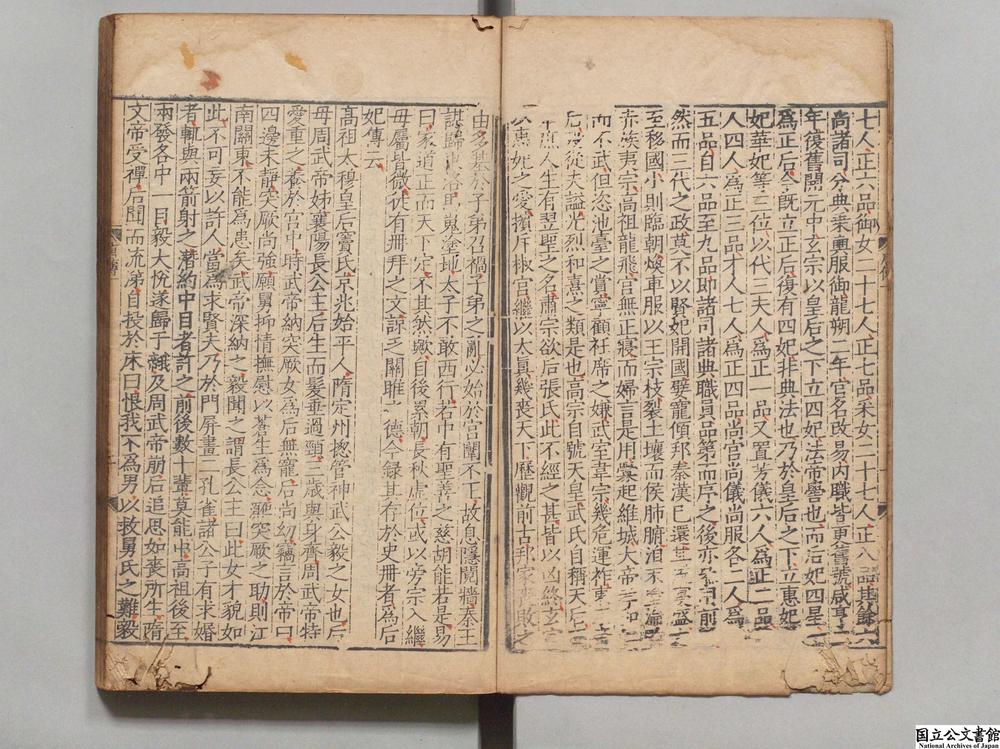 七人正六品御女二十七人正七品采女二十七人正八品其餘六
尚諸司分典乗輿服御龍朔二年官名改易内職皆更舊號咸亨二
年復舊開元中玄宗以皇后之下立四妃法帝嚳也而后妃四星一
為正后今既立正后復有四妃非典法也乃於皇后之下立惠妃
妃華妃等三位以代三夫人為正一品又置芳儀六人為正二品
人四人為正三品才人七人為正四品尚宫尚儀尚服各二人為
五品自六品至九品即諸司諸典職員品第而序之後亦
前
然而三代之政莫不以賢妃開國嬖寵傾邦秦漢已還
盛
至移國小則臨朝煥車服以王宗枝裂土壤而侯肺腑洎末
赤族夷宗高祖龍飛宫無正寢而婦言是用釁起維城大帝孝和
而不武但恣池臺之賞寧顧衽席之嫌武室韋宗幾危運祚東
后
從夫謚光烈和熹之類是也高宗自號天皇武氏自稱天后
人生有翌聖之名肅宗欲后張氏此不經之甚皆以凶終玄宗
以惠妃之愛擯斥椒宫繼以太眞幾喪天下歷觀前古邦家喪敗之
由多基於子弟召禍子弟之亂必始於宫闈不正故息隱閱牆秦王
謀歸東洛馬嵬塗地太子不敢西行若中有聖善之慈胡能若是易
曰家道正而天下定不其然歟自後累朝長秋虚位或以旁宗入繼
母屬皆微徒有册拜之文諒乏關雎之德今録其存於史册者為后
妃傳云
高祖太穆皇后竇氏京兆始平人隋定州總管神武公毅之女也后
母周武帝姊襄陽長公主后生而髮垂過頸三歲與身齊周武帝特
愛重之養於宫中時武帝納突厥女為后無寵后尚幼竊言於帝曰
四邊未静突厥尚強願舅抑情撫慰以蒼生為念須突厥之助則江
南關東不能為患矣武帝深納之毅聞之謂長公主曰此女才貌如
此不可妄以許人當為求賢夫乃於門屏畫二孔雀諸公子有求婚
者輒與兩箭射之潜約中目者許之前後數十輩莫能中高祖後至
兩發各中一目毅大悦遂歸于我及周武帝崩后追思如喪所生隋
文帝受禪后聞而流涕自投於床曰恨我不為男以救舅氏之難毅
国立公文書館
National Archives of Japan